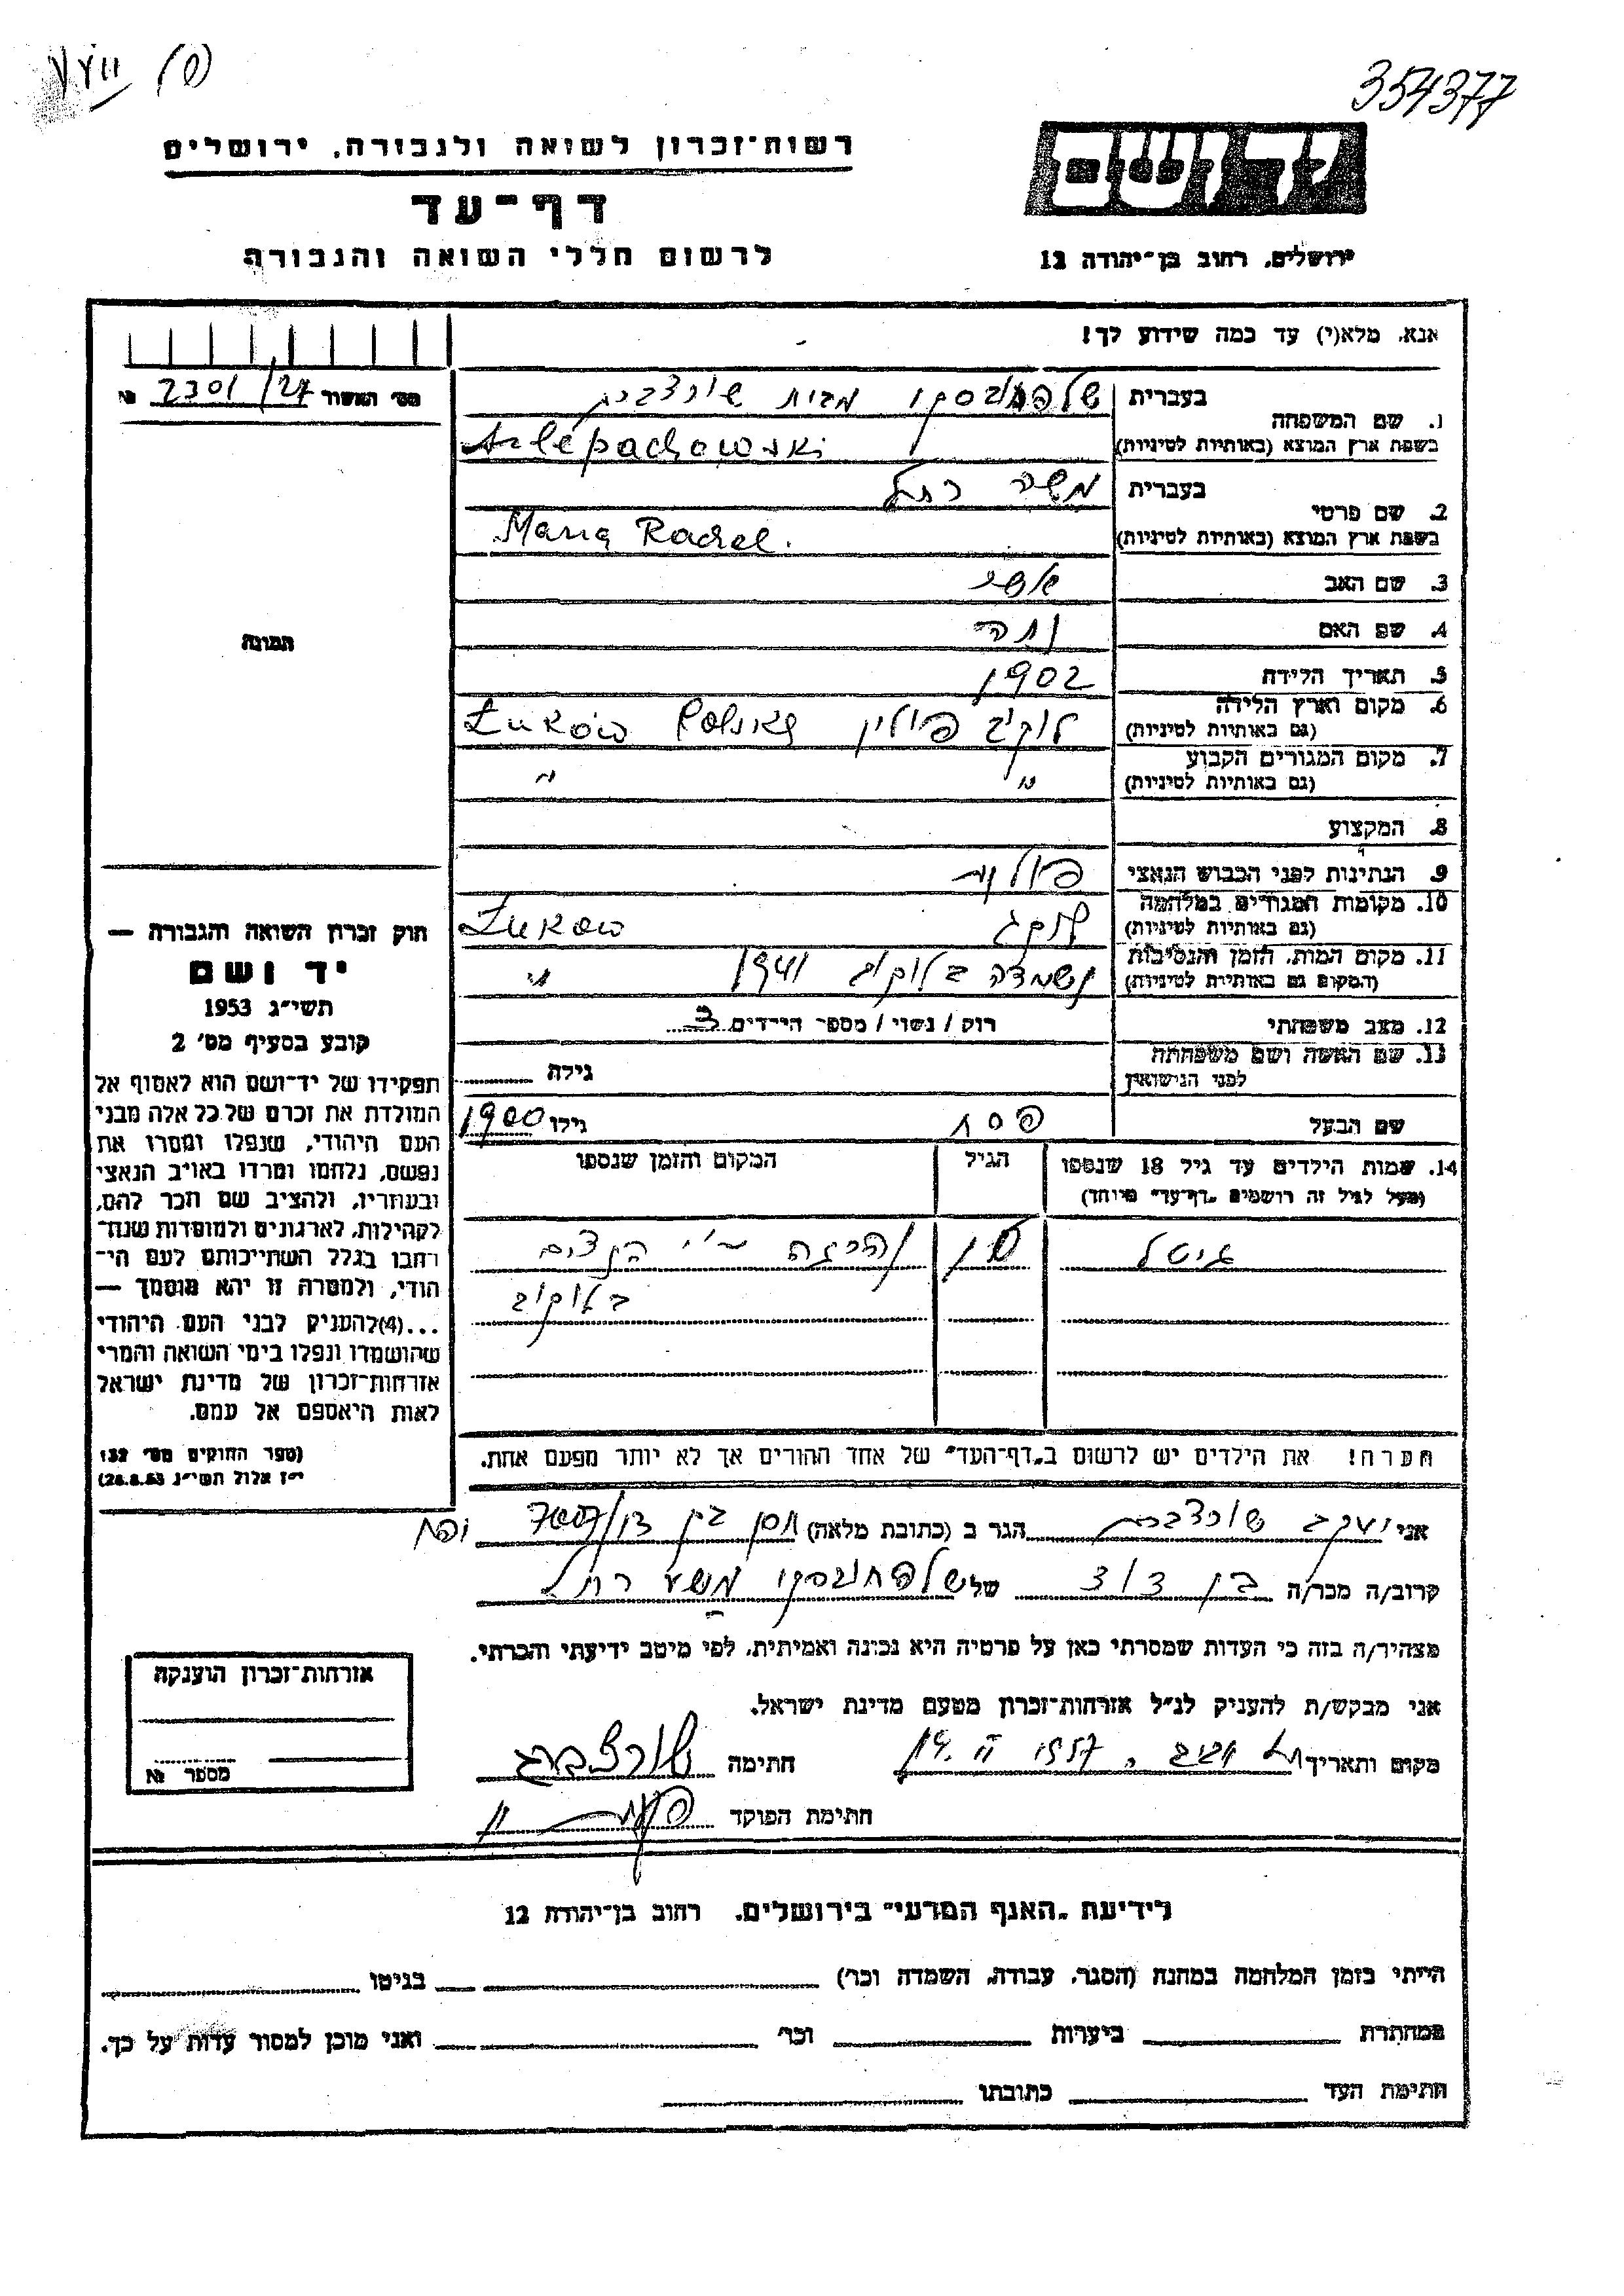 354377
רשות־זכרון לשואה ולגבורה, ירושלים
דף־עד
לרשום חללי השואה והגבורה
ירושלים, רחוב בן־יהודה 12
אנא, מלא(י) עד כמה שידוע לך!
מס׳ האשור 2301/27 №
1. שם המשפחה בעברית מבית שורצברג
בשפת ארץ המוצא (באותיות לטיניות) Szlepachowski
2. שם פרטי בעברית רחל
בשפת ארץ המוצא (באותיות לטיניות) Rachel.
3. שם האב אשר
4. שם האם
5. תאריך הלידה 1902
6. מקום וארץ הלידה (גם באותיות לטיניות) לוקוב פולין Polska Łuków
7. מקום המגורים הקבוע (גם באותיות לטיניות) " "
8. המקצוע
9. הנתינות לפני הכבוש הנאצי פולנית
10. מקומות המגורים במלחמה (גם באותיות לטיניות) לוקוב Łuków
11. מקום המות, הזמן והנסיבות (המקום גם באותיות לטיניות) נשמדה בלוקוב 1941 "
12. מצב משפחתי רוק / נשוי / מספר הילדים 3
13. שם האשה ושם משפחתה לפני הנישואין גילה
שם הבעל פסח גילו 1900
14. שמות הילדים עד גיל 18 שנספו הגיל המקום והזמן שנספו
(מעל לגיל זה רושמים „דף־עד״ מיוחד)
גיטל נהרגה ע״י הנצים
בלוקוב
הערה! את הילדים יש לרשום ב„דף־העד״ של אחד ההורים אך לא יותר מפעם אחת.
תמונה
חוק זכרון השואה והגבורה —
יד ושם
תשי״ג 1953
קובע בסעיף מס׳ 2
תפקידו של יד־ושם הוא לאסוף אל
המולדת את זכרם של כל אלה מבני
העם היהודי, שנפלו ומסרו את
נפשם, נלחמו ומרדו באויב הנאצי
ובעוזריו, ולהציב שם וזכר להם,
לקהילות, לארגונים ולמוסדות שנח־
רבו בגלל השתייכותם לעם הי־
הודי, ולמטרה זו יהא מוסמך —
...(4)להעניק לבני העם היהודי
שהושמדו ונפלו בימי השואה והמרי
אזרחות־זכרון של מדינת ישראל
לאות היאספם אל עמם.
(ספר החוקים מס׳ 132
י״ז אלול תשי״ג 28.8.53)
אני יעקב שורצברג הגר ב (כתובת מלאה)
קרוב/ה מכר/ה בן דוד של שלפחובסקי רחל
מצהיר/ה בזה כי העדות שמסרתי כאן על פרטיה היא נכונה ואמיתית, לפי מיטב ידיעתי והכרתי.
אני מבקש/ת להעניק לנ״ל אזרחות־זכרון מטעם מדינת ישראל.
מקום ותאריך תל אביב, 19. II 1957 חתימה שורצברג
חתימת הפוקד
אזרחות־זכרון הוענקה
מספר №
לידיעת „האגף המדעי״ בירושלים, רחוב בן־יהודה 12
הייתי בזמן המלחמה במחנה (הסגר, עבודה, השמדה וכו׳) בגיטו
במחתרת ביערות וכו׳ ואני מוכן למסור עדות על כך.
חתימת העד כתובתו